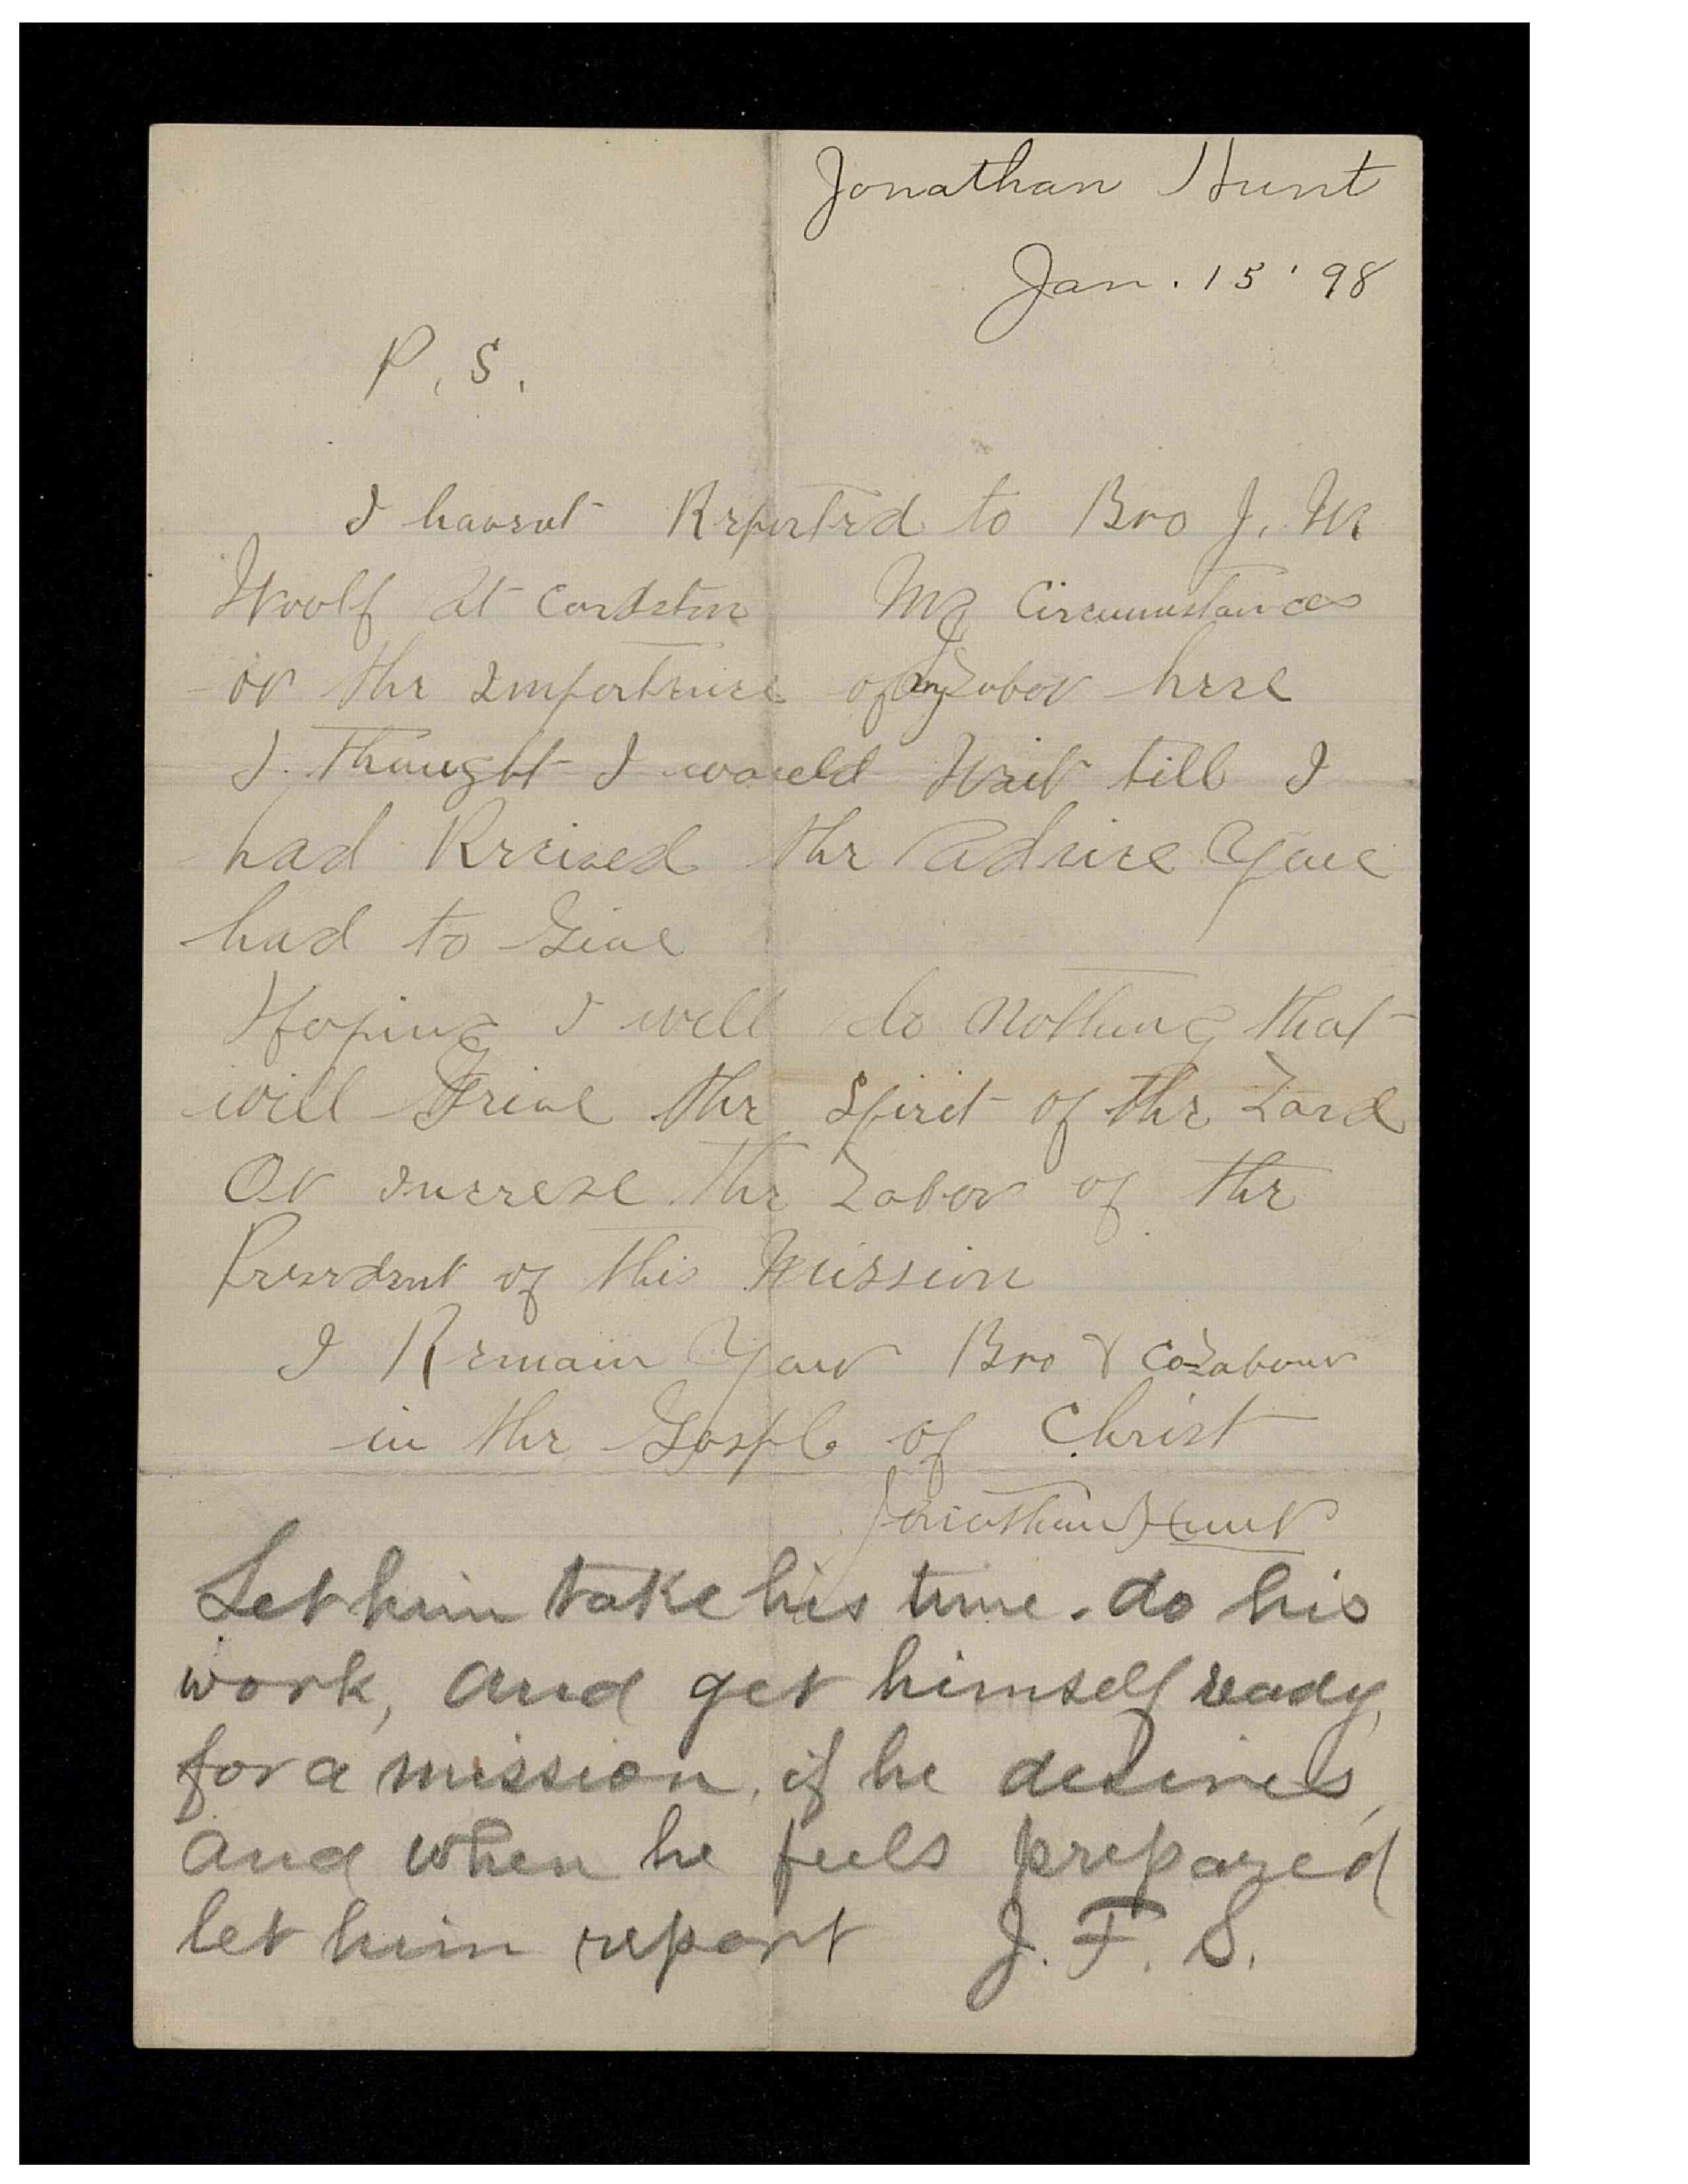 Jonathan Hunt
Jan. 15 '98
P. S.
I havent Reported to Bro J. W.
Woolf at Cardston My Circumstances
or the Importence of my Labor here
I Thought I would Wait till I
had Recived the Advice You
had to Give
Hoping I will do Nothing that
will Grive the Spirit of the Lord
Or increse the Labor of the
Presedent of this Mission
I Remain Your Bro & Co-Labour
in the Gospl of Christ
Jonathan Hunt
Let him take his time. do his
work, and get himself ready,
for a mission, if he desires,
and when he feels prepared
let him report J. F. S.